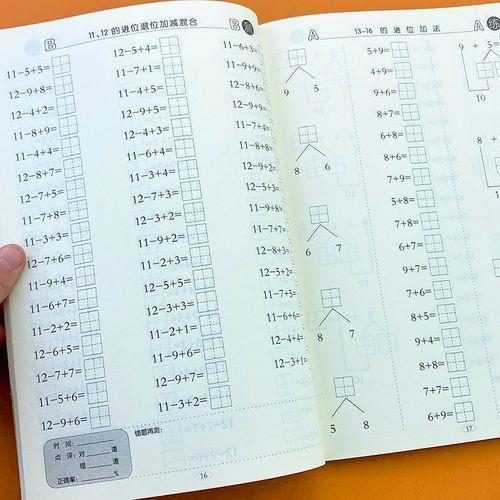 B
11、12 的进位退位加减混合
B
11-5+5=
12-9+8=
12-4+2=
11-8+9=
11-4+4=
12-8+7=
12-7+5=
11-7+8=
11-3+3=
12-7+6=
11-9+4=
11-6+7=
11-2+2=
12-6+5=
12-7+7=
11-5+6=
12-9+6=
12-5+4=
11-7+1=
11-4+5=
12-9+5=
12-4+3=
11-6+4=
11-3+4=
12-7+3=
12-3+2=
11-9+2=
11-2+3=
12-5+5=
12-3+3=
11-2+1=
11-9+6=
12-9+7=
11-3+2=
11-6+3=
11-9+9=
12-8+6=
12-9+9=
11-7+4=
11-8+8=
12-9+2=
12-5+3=
11-9+8=
11-7+7=
12-8+3=
12-5+2=
11-7+5=
11-6+6=
12-4+4=
12-3+1=
时 间:
点 评:对 道
错 道
正确率: %
错题再测:
16
A
13-16 的 进 位 加 法
A
练
9 5
8 6
6 7
8 7
5 8
5+9=
4+9=
9+6=
8+7=
6+8=
8+6=
7+9=
5+8=
7+8=
6+7=
9+7=
7+6=
8+5=
9+4=
8+8=
7+7=
6+9=
9 + 5=
10
8 +
17